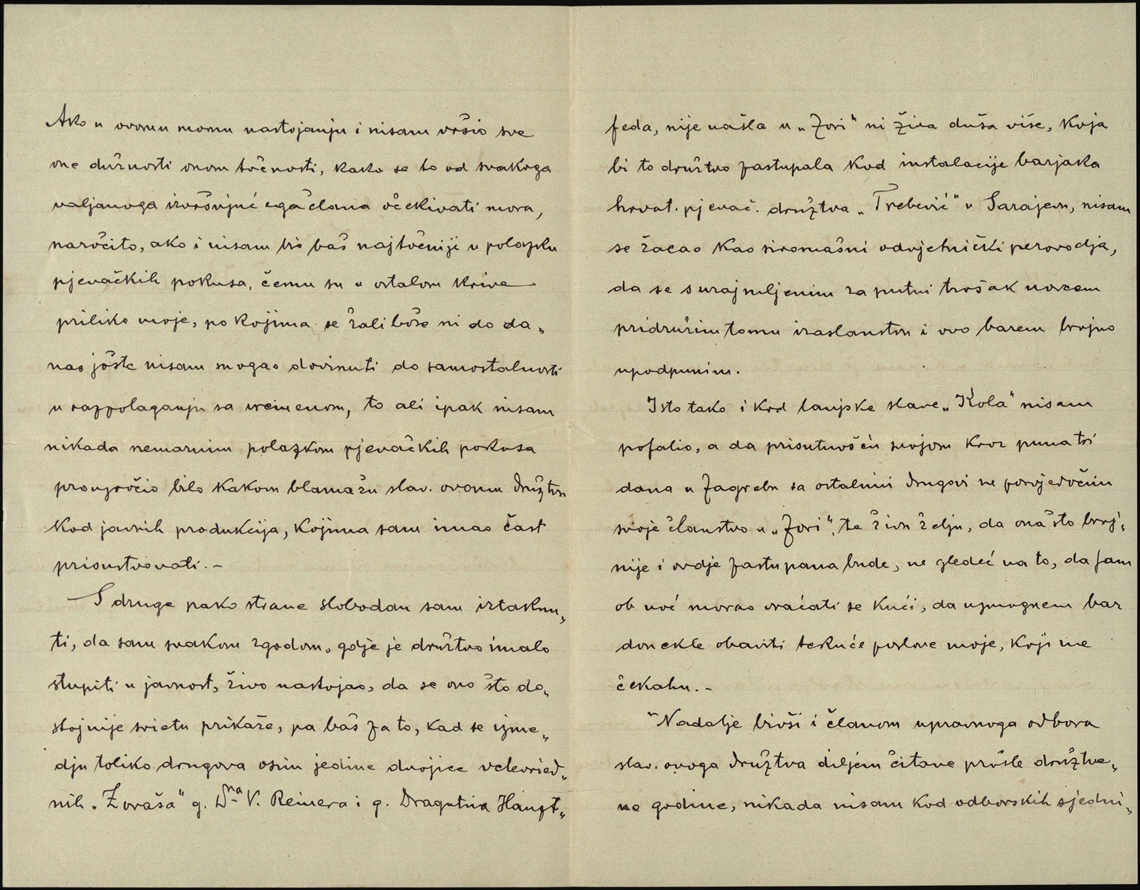 Ako u ovomu momu nastojanju i nisam vršio sve
one dužnosti onom točnosti, kako se to od svakoga
valjanoga izvršujućega člana očekivati mora,
naročito, ako i nisam bio baš najtočniji u polazku
pjevačkih pokusa, čemu su u ostalom krive
prilike moje, po kojima se žalibože ni do da„
nas jošte nisam mogao dovinuti do samostalnosti
u razpolaganju sa vremenom, to ali ipak nisam
nikada nemarnim polazkom pjevačkih pokusa
prouzročio bilo kakom blamažu slav. ovomu družtvu
kod javnih produkcija, kojima sam imao čast
prisustvovati. –
S druge pako strane slobodan sam iztaknu„
ti, da sam svakom zgodom, gdje je družtvo imalo
stupiti u javnost, živo nastojao, da se ono što do„
stojnije svietu prikaže, pa baš za to, kad se izme„
dju toliko drugova osim jedine dvojice velevried„
nih „Zoraša" g. Dra V. Reinera i g. Dragutina Haupt„
felda, nije našla u „Zori" ni živa duša više, koja
bi to družtvo zastupala kod instalacije barjaka
hrvat. pjevač. družtva „Trebević" u Sarajevu, nisam
se žacao kao siromašni odvjetnički perovodja,
da se s unajmljenim za putni trošak novcem
pridružim tomu izaslanstvu i ovo barem brojno
upodpunim.
Isto tako i kod lanjske slave „Kola" nisam
pofalio, a da prisutnošću svojom kroz puna tri
dana u Zagrebu sa ostalimi drugovi ne posvjedočim
svoje članstvo u „Zori", te živu želju, da ona što broj„
nije i ovdje zastupana bude, ne gledeć na to, da sam
ob noć morao vraćati se kući, da uzmognem bar
donekle obaviti tekuće poslove moje, koji me
čekahu. –
Nadalje bivši i članom upravnoga odbora
slav. ovoga družtva diljem čitave prošle družtve„
ne godine, nikada nisam kod odborskih sjedni„